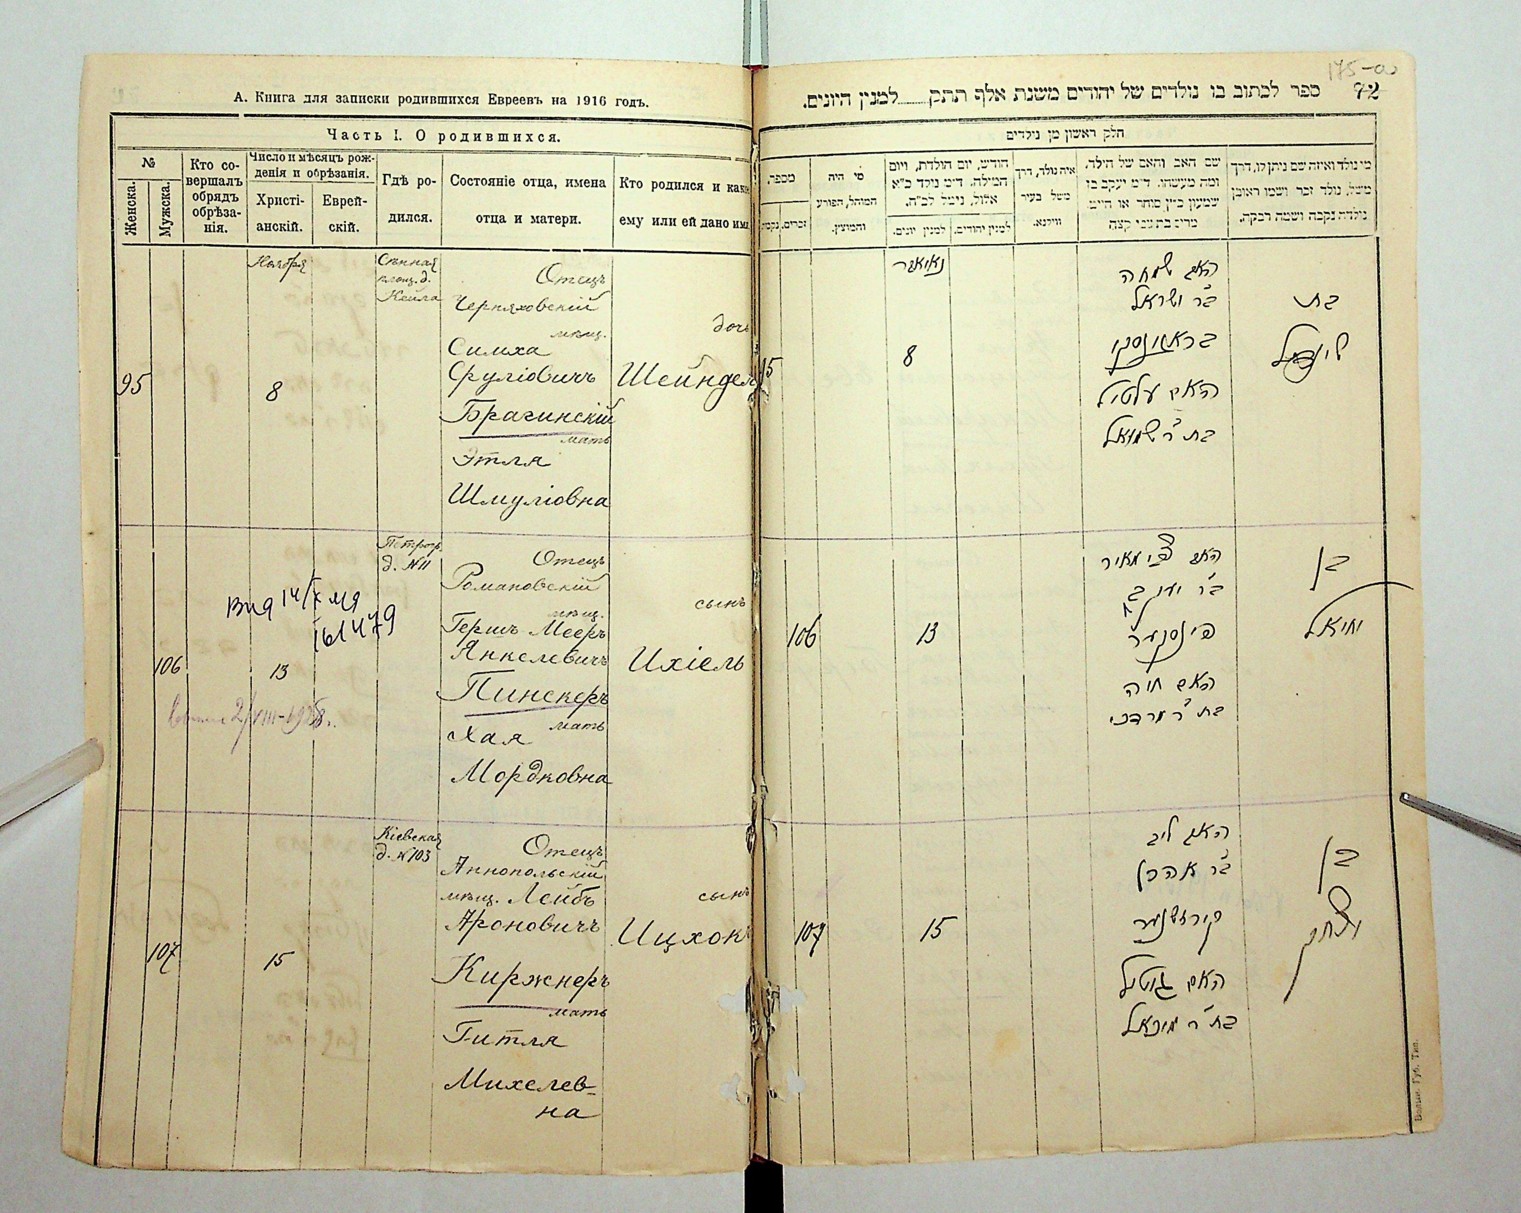 А. Книга для записки родившихся Евреевъ на 1916 годъ.
Часть I. О родившихся.
№
Женска.
Мужска.
Кто со-
вершалъ
обрядъ
обрѣза-
нія.
Число и мѣсяцъ рож-
денія и обрѣзанія.
Христі-
анскій.
Еврей-
скій.
Гдѣ ро-
дился.
Состояніе отца, имена
отца и матери.
Кто родился и како
ему или ей дано имя
Ноября
Сѣнная
площ. д.
Кейла
Отецъ
Черняховскій
мѣщ.
Симха
Сруліовичъ
Брагинскій
мать
Этля
Шмуліовна
дочь
Шейндел
95
8
Петрогр.
д. №11
Отецъ
Романовскій
мѣщ.
Гершъ Мееръ
Янкелевичъ
Пинскеръ
мать
Хая
Мордковна
сынъ
Ихіель
106
13
161479
Кіевская
д. №103
Отецъ
Аннопольскій
мѣщ. Лейбъ
Ароновичъ
Киржнеръ
мать
Гитля
Михелев-
на
сынъ
Ицхокъ
107
15
175-об
72
ספר לכתוב בו נולדים של יהודים משנת אלף תתק למנין היונים.
חלק ראשון מן נולדים
מספר,
זכרים,
מי היה
המוהל, הפורע
והמוצץ.
חודש, יום הולדת, ויום
המילה. ד״מ נולד כ״א
אלול, נימל לכ״ח.
למנין יונים.
למנין יהודים.
איה נולד, דרך
משל בעיר
ווילנא.
שם האב והאם של הילד,
ומה מעשהו. ד״מ יעקב בן
שמעון כ״ץ סוחר או חייט
מי נולד ואיזה שם ניתן לו, דרך
משל, נולד זכר ושמו ראובן
נולדה נקבה ושמה רבקה.
נאיאבר
8
האב שמחה
ב״ר ישראל
בראגינסקי
האם עטיל
בת ר׳ שמואל
בת
שיינדל
106
13
האב צבי מאיר
ב״ר יעקב
פינסקער
האם חיה
בת ר׳ מרדכי
בן
יחיאל
107
15
האב ליב
ב״ר אהרן
קירזשנער
האם גוטיל
בת ר׳ מיכאל
בן
יצחק
Волын. Губ. Тип.